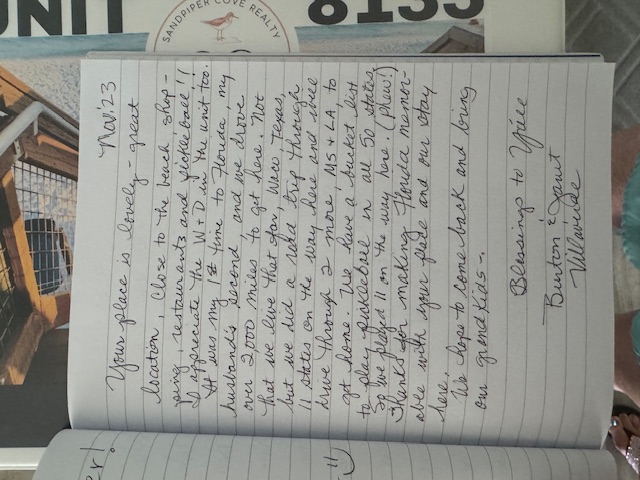 UNIT 8133
SANDPIPER COVE REALTY
Nov '23
Your place is lovely - great
location, close to the beach, shop-
ping, restaurants and pickleball!!
I appreciate the W + D in the unit too.
It was my 1st time to Florida, my
husband's second and we drove
over 2,000 miles to get here. Not
that we live that far, Waco Texas,
but we did a road trip through
11 states on the way here and will
drive through 2 more, MS + LA, to
get home. We have a bucket list
to play pickleball in all 50 states
so we played 11 on the way here. (phew!)
Thanks for making Florida memor-
able with your place and our stay
here.
We hope to come back and bring
our grandkids -
Blessings to You
Burton & Janit
er!